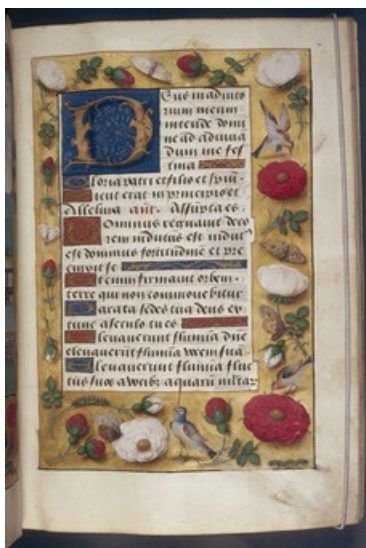 Deus in adiuto
rium meum
intende domi
ne ad adiuua
dum me fes
tina
Gloria patri et filio et spiri
Sicut erat in principio et
Alleluia ant. Assumpta es.
Dominus regnauit deco
rem indutus est indut
est dominus fortitudinē et pre
cinxit se
Etenim firmauit orbem
terre qui non commouebitur
Parata sedes tua deus ex
tunc a seculo tu es
Eleuauerunt flumina dn̄e
eleuauerūt flumina vocem suā
Eleuauerunt flumina fluc
tus suos a vocib aquarū multar